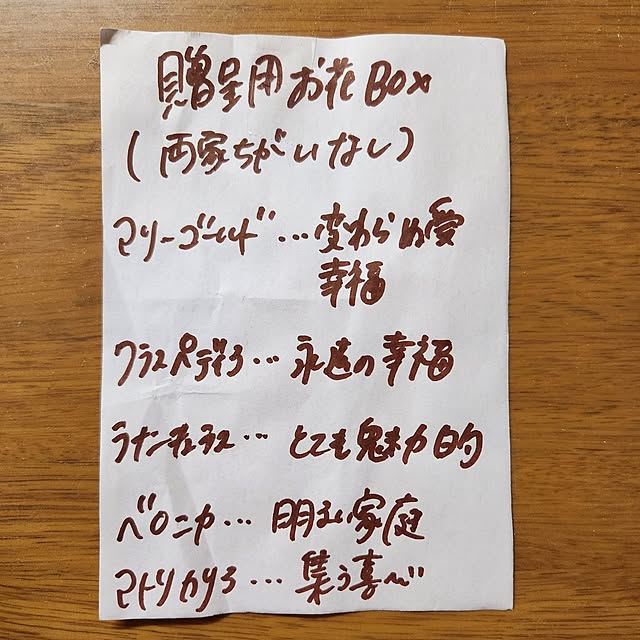 贈呈用お花BOX
(両家ちがいなし)
マリーゴールド…変わらぬ愛
幸福
クラスペディろ…永遠の幸福
ラナンキュラス…とても魅力的
ベロニカ…明るい家庭
マトリカリろ…集う喜び